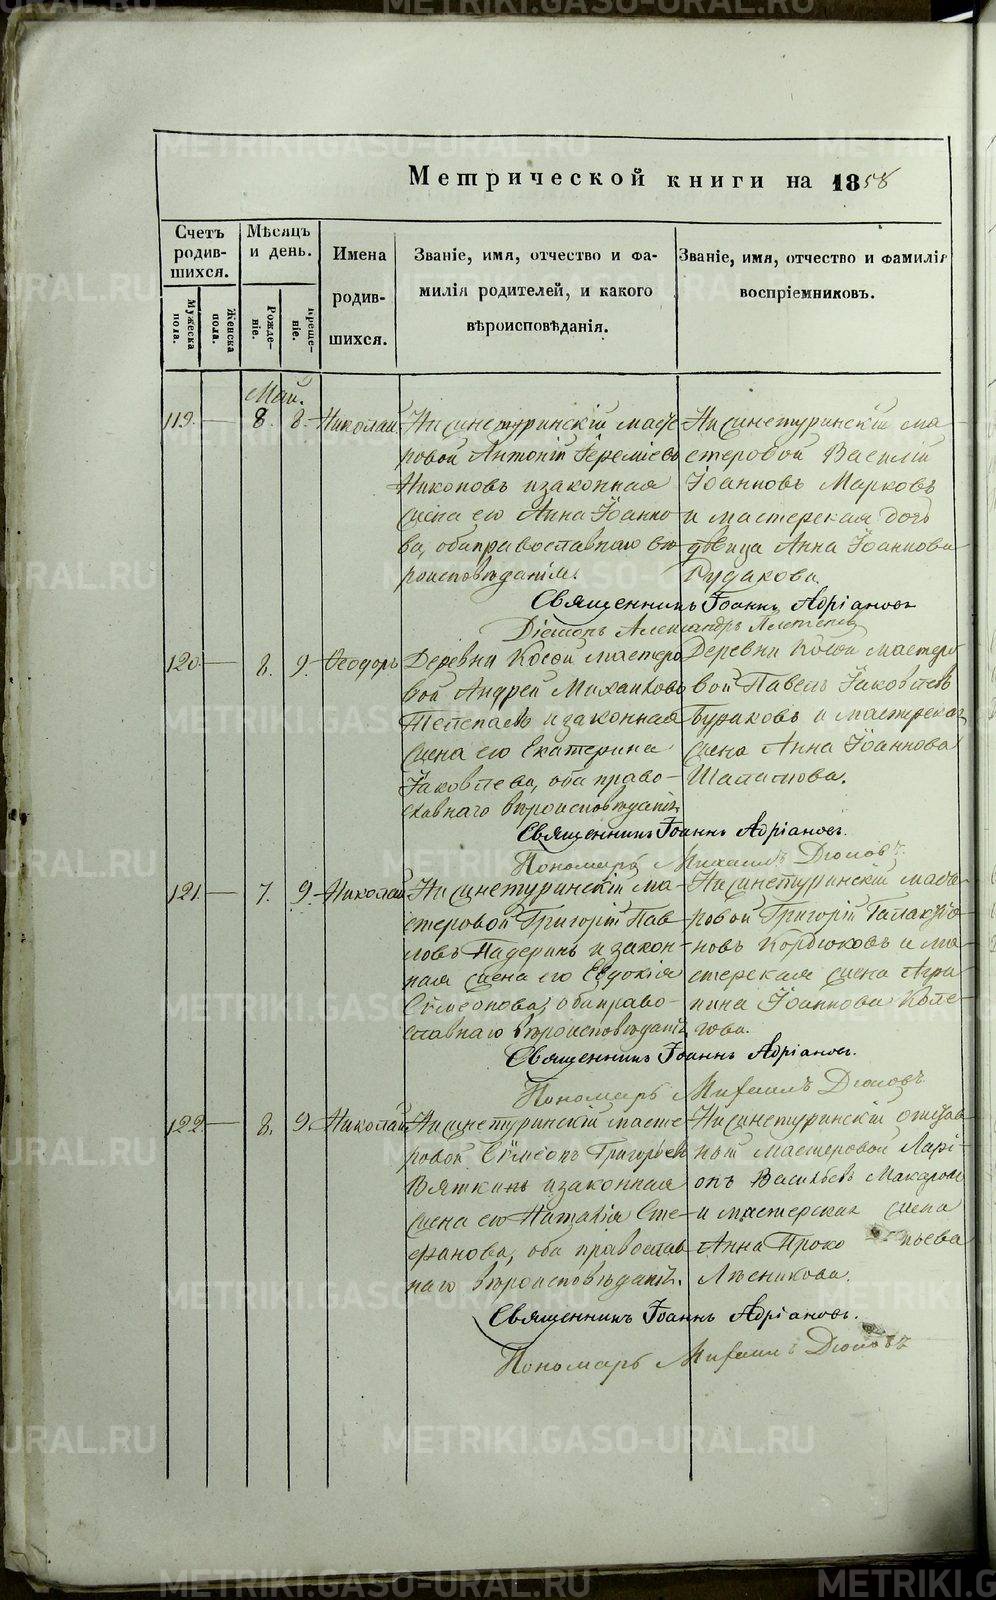 Метрической книги на 1858
Счетъ родив-шихся.
Мужеска пола.
Женска пола.
Мѣсяцъ и день.
Рожде-ніе.
Креще-ніе.
Имена родив-шихся.
Званіе, имя, отчество и фа-
милія родителей, и какого
вѣроисповѣданія.
Званіе, имя, отчество и фамилія
воспріемниковъ.
Май.
119. — 8. 8. Николай
Нисинетуринскій масте
ровой Антоній Іереміевъ
Никоновъ и законная
жена его Анна Іоанно
ва, оба православнаго вѣ
роисповѣданія.
Нисинетуринскій ма-
стеровой Василій
Іоанновъ Марковъ
и мастерская дочь
дѣвица Анна Іоаннова
Рудакова.
Священникъ Іоаннъ Адріановъ
Діаконъ Александръ
120. — 8. 9. Ѳеодоръ
Деревни Косой мастеро
вой Андрей Михайловъ
и законная
жена его Екатерина
Іаковлева, оба право-
славнаго вѣроисповѣданія
Деревни Косой мастеро
вой Павелъ Іаковлевъ
Бушковъ и мастерская
жена Анна Іоаннова
Шаламова.
Священникъ Іоаннъ Адріановъ.
Пономарь Михаилъ Дюковъ.
121. — 7. 9. Николай
Нисинетуринскій ма-
стеровой Григорій Пав-
ловъ Падеринъ и закон-
ная жена его Евдокія
Сѵмеонова, оба право-
славнаго вѣроисповѣданія.
Нисинетуринскій масте-
ровой Григорій Галактіо-
новъ Кордюковъ и ма-
стерская жена Агри-
пина Іоаннова Коле-
гова.
Священникъ Іоаннъ Адріановъ.
Пономарь Михаилъ Дюковъ
122. — 8. 9. Николай
Нисинетуринскій масте-
ровой Сѵмеонъ Григорьевъ
Вяткинъ и законная
жена его Наталія Сте-
фанова, оба православ
наго вѣроисповѣданія.
Нисинетуринскій отстав
ный мастеровой Ларі-
онъ Васильевъ Макаровъ
и мастерская жена
Анна Прокопьева
Лѣсникова.
Священникъ Іоаннъ Адріановъ.
Пономарь Михаилъ Дюковъ
METRIKI.GASO-URAL.RU